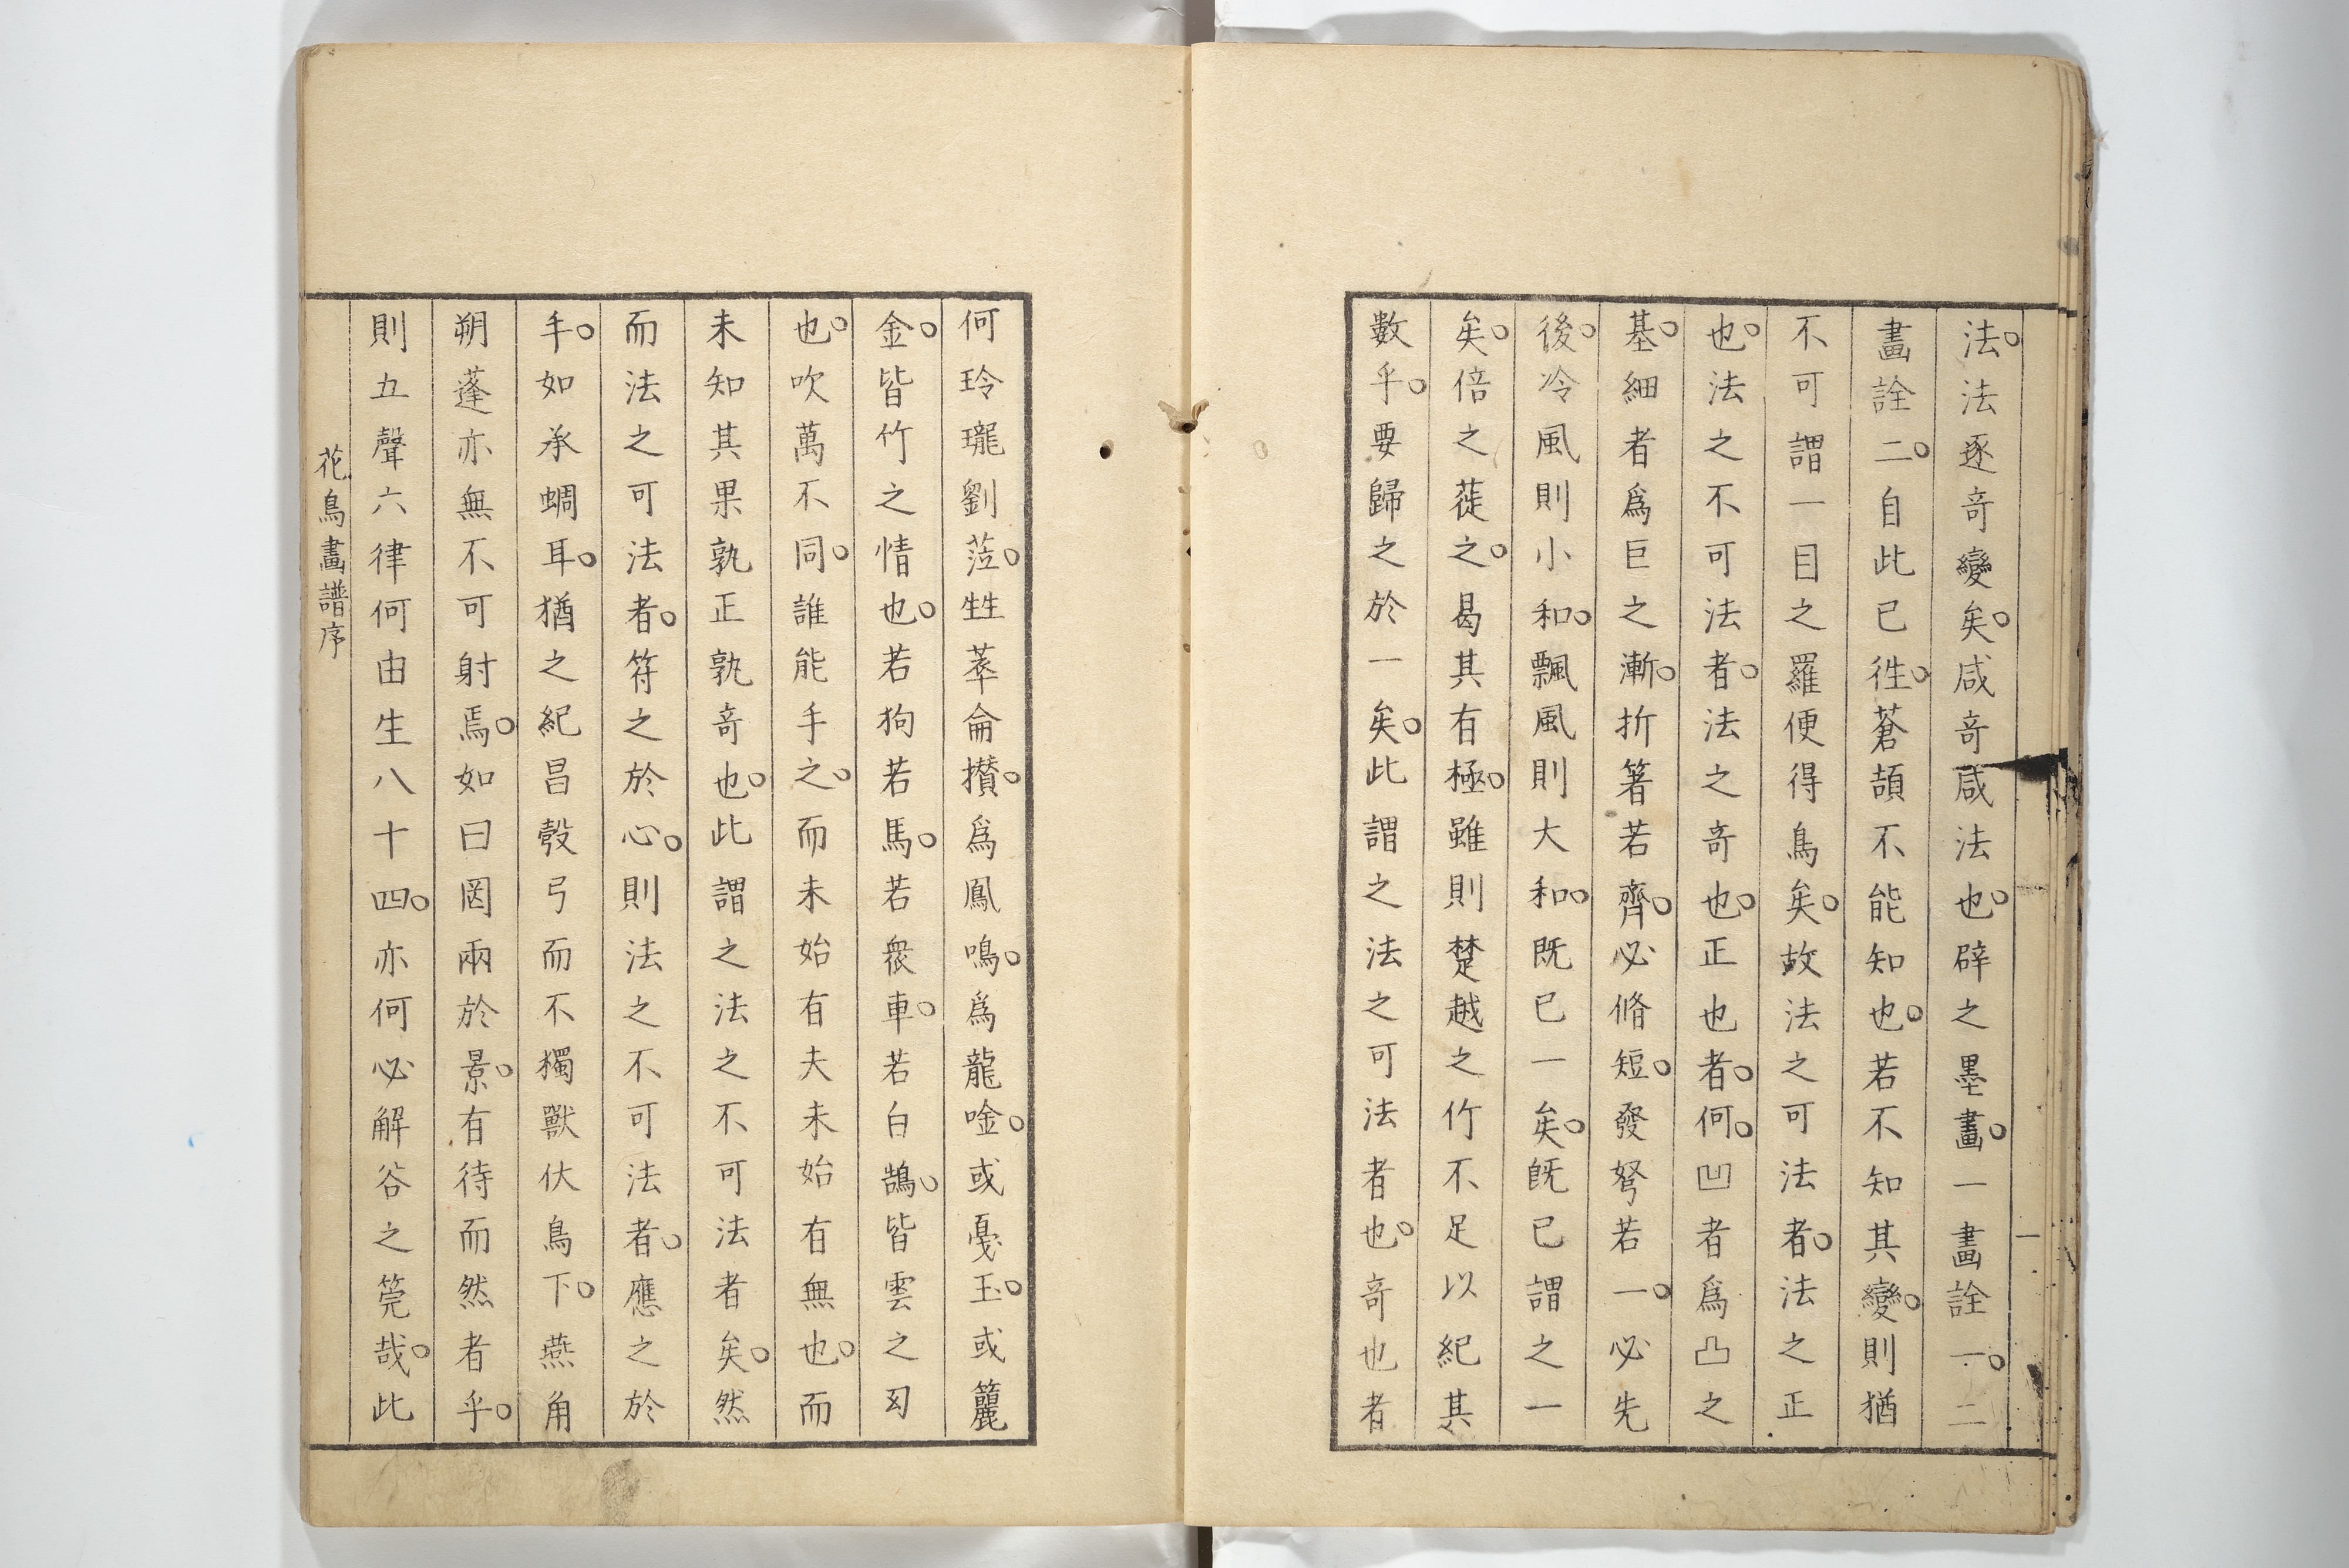 法。法逐奇變矣。咸奇咸法也。辟之墨畫。一畫詮一。二
畫詮二。自此已徃。蒼頡不能知也。若不知其變。則猶
不可謂一目之羅便得鳥矣。故法之可法者。法之正
也。法之不可法者。法之奇也。正也者。何。凹者爲凸之
基。細者爲巨之漸。折箸若齊。必脩短。發弩若一。必先
後。冷風則小和。飄風則大和。既已一矣。既已謂之一
矣。倍之蓰之。曷其有極。雖則楚越之竹不足以紀其
數乎。要歸之於一矣。此謂之法之可法者也。奇也者
何玲瓏劉莅。甡萃侖攢。爲鳳鳴。爲龍唫。或戛玉。或籭
金。皆竹之情也。若狗若馬。若衆車。若白鵠。皆雲之𠣏
也。吹萬不同。誰能手之。而未始有夫未始有無也。而
未知其果孰正孰奇也。此謂之法之不可法者矣。然
而法之可法者。符之於心。則法之不可法者。應之於
手。如承蜩耳。猶之紀昌彀弓而不獨獸伏鳥下。燕角
朔蓬亦無不可射焉。如曰罔兩於景。有待而然者乎。
則五聲六律何由生八十四。亦何必解谷之筦哉。此
花鳥畫譜序
一